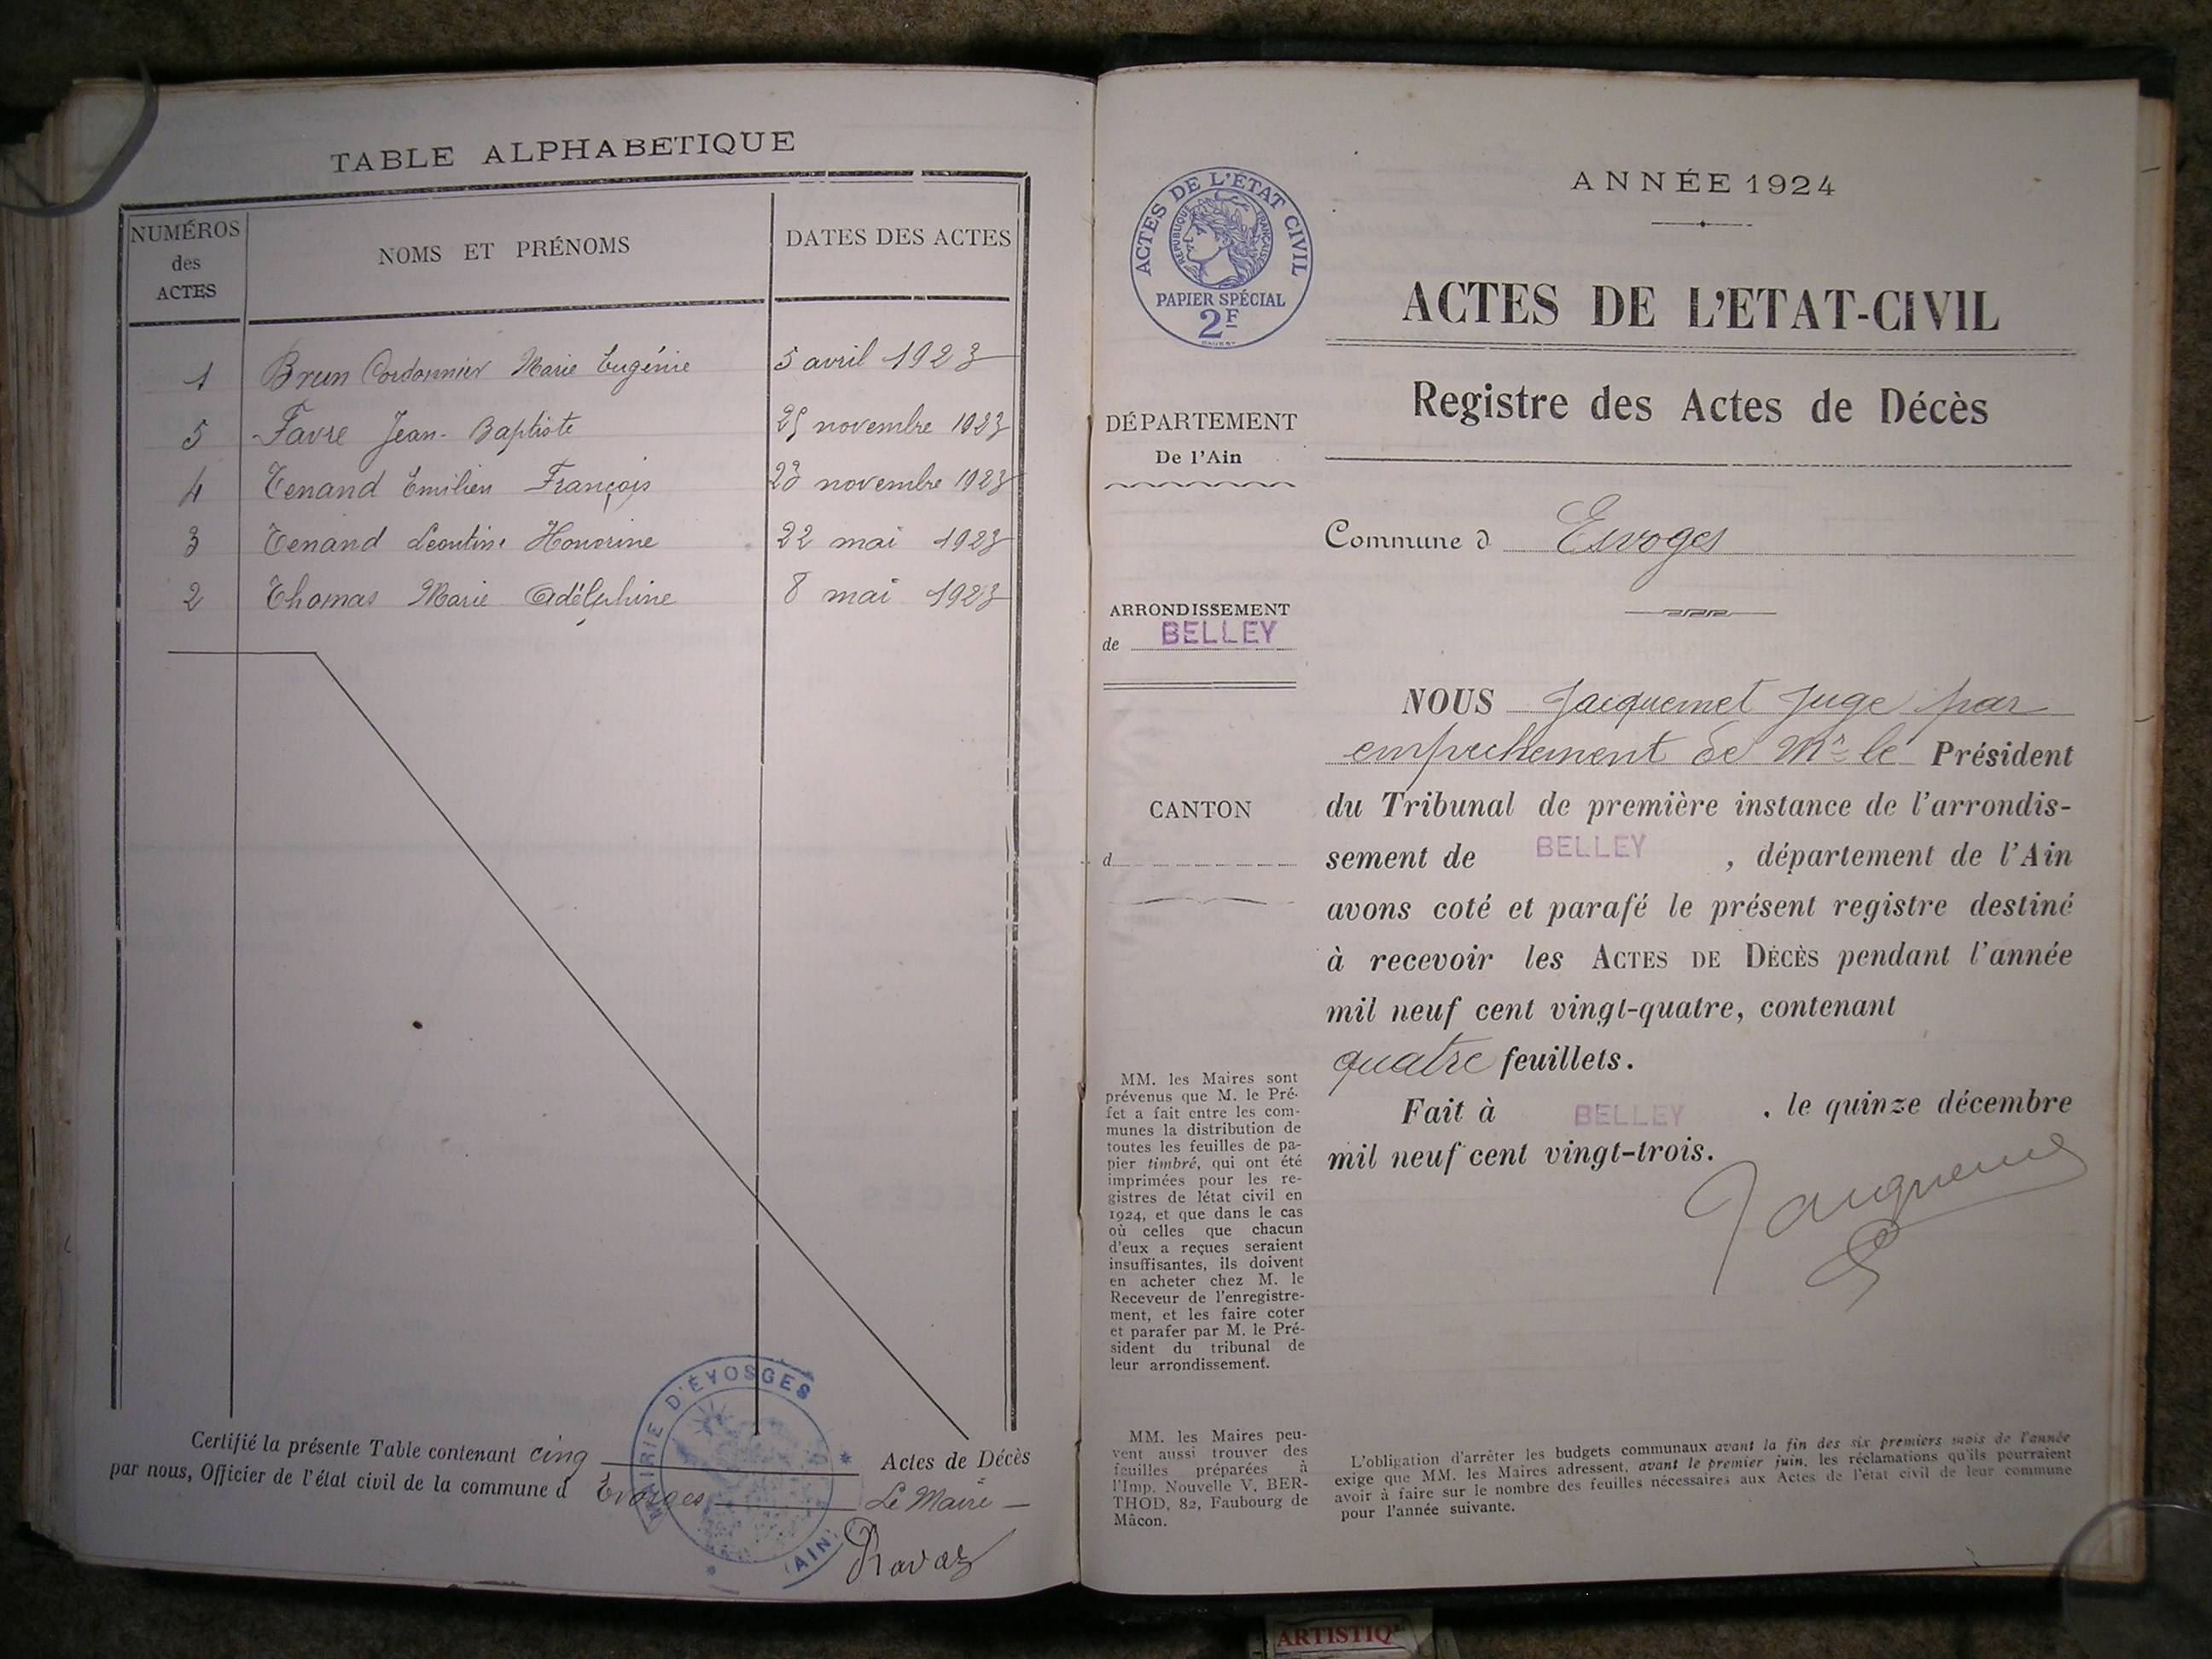 TABLE ALPHABETIQUE
NUMÉROS des ACTES
NOMS ET PRÉNOMS
DATES DES ACTES
1 Brun Cordonnier Marie Eugénie 5 avril 1923
5 Favre Jean-Baptiste 25 novembre 1923
4 Tenand Emilien François 23 novembre 1923
3 Tenand Leontine Honorine 22 mai 1923
2 Thomas Marie Adélphine 8 mai 1923
Certifié la présente Table contenant cinq Actes de Décès
par nous, Officier de l'état civil de la commune d Evosges Le Maire
MAIRIE D'ÉVOSGES
(AIN)
Ravaz
ACTES DE L'ÉTAT CIVIL
RÉPUBLIQUE FRANÇAISE
PAPIER SPÉCIAL
2F
DÉPARTEMENT
De l'Ain
ARRONDISSEMENT
de BELLEY
CANTON
d
MM. les Maires sont
prévenus que M. le Pré-
fet a fait entre les com-
munes la distribution de
toutes les feuilles de pa-
pier timbré, qui ont été
imprimées pour les re-
gistres de létat civil en
1924, et que dans le cas
où celles que chacun
d'eux a reçues seraient
insuffisantes, ils doivent
en acheter chez M. le
Receveur de l'enregistre-
ment, et les faire coter
et parafer par M. le Pré-
sident du tribunal de
leur arrondissement.
MM. les Maires peu-
vent aussi trouver des
feuilles préparées à
l'Imp. Nouvelle V. BER-
THOD, 82, Faubourg de
Mâcon.
ANNÉE 1924
ACTES DE L'ETAT-CIVIL
Registre des Actes de Décès
Commune d Evoges
NOUS Jacquemet Juge par
empêchement de Mr le Président
du Tribunal de première instance de l'arrondis-
sement de BELLEY, département de l'Ain
avons coté et parafé le présent registre destiné
à recevoir les ACTES DE DÉCÈS pendant l'année
mil neuf cent vingt-quatre, contenant
quatre feuillets.
Fait à BELLEY, le quinze décembre
mil neuf cent vingt-trois.
Jacquemet
L'obligation d'arrêter les budgets communaux avant la fin des six premiers mois de l'année
exige que MM. les Maires adressent, avant le premier juin, les réclamations qu'ils pourraient
avoir à faire sur le nombre des feuilles nécessaires aux Actes de l'état civil de leur commune
pour l'année suivante.
ARTISTIQ